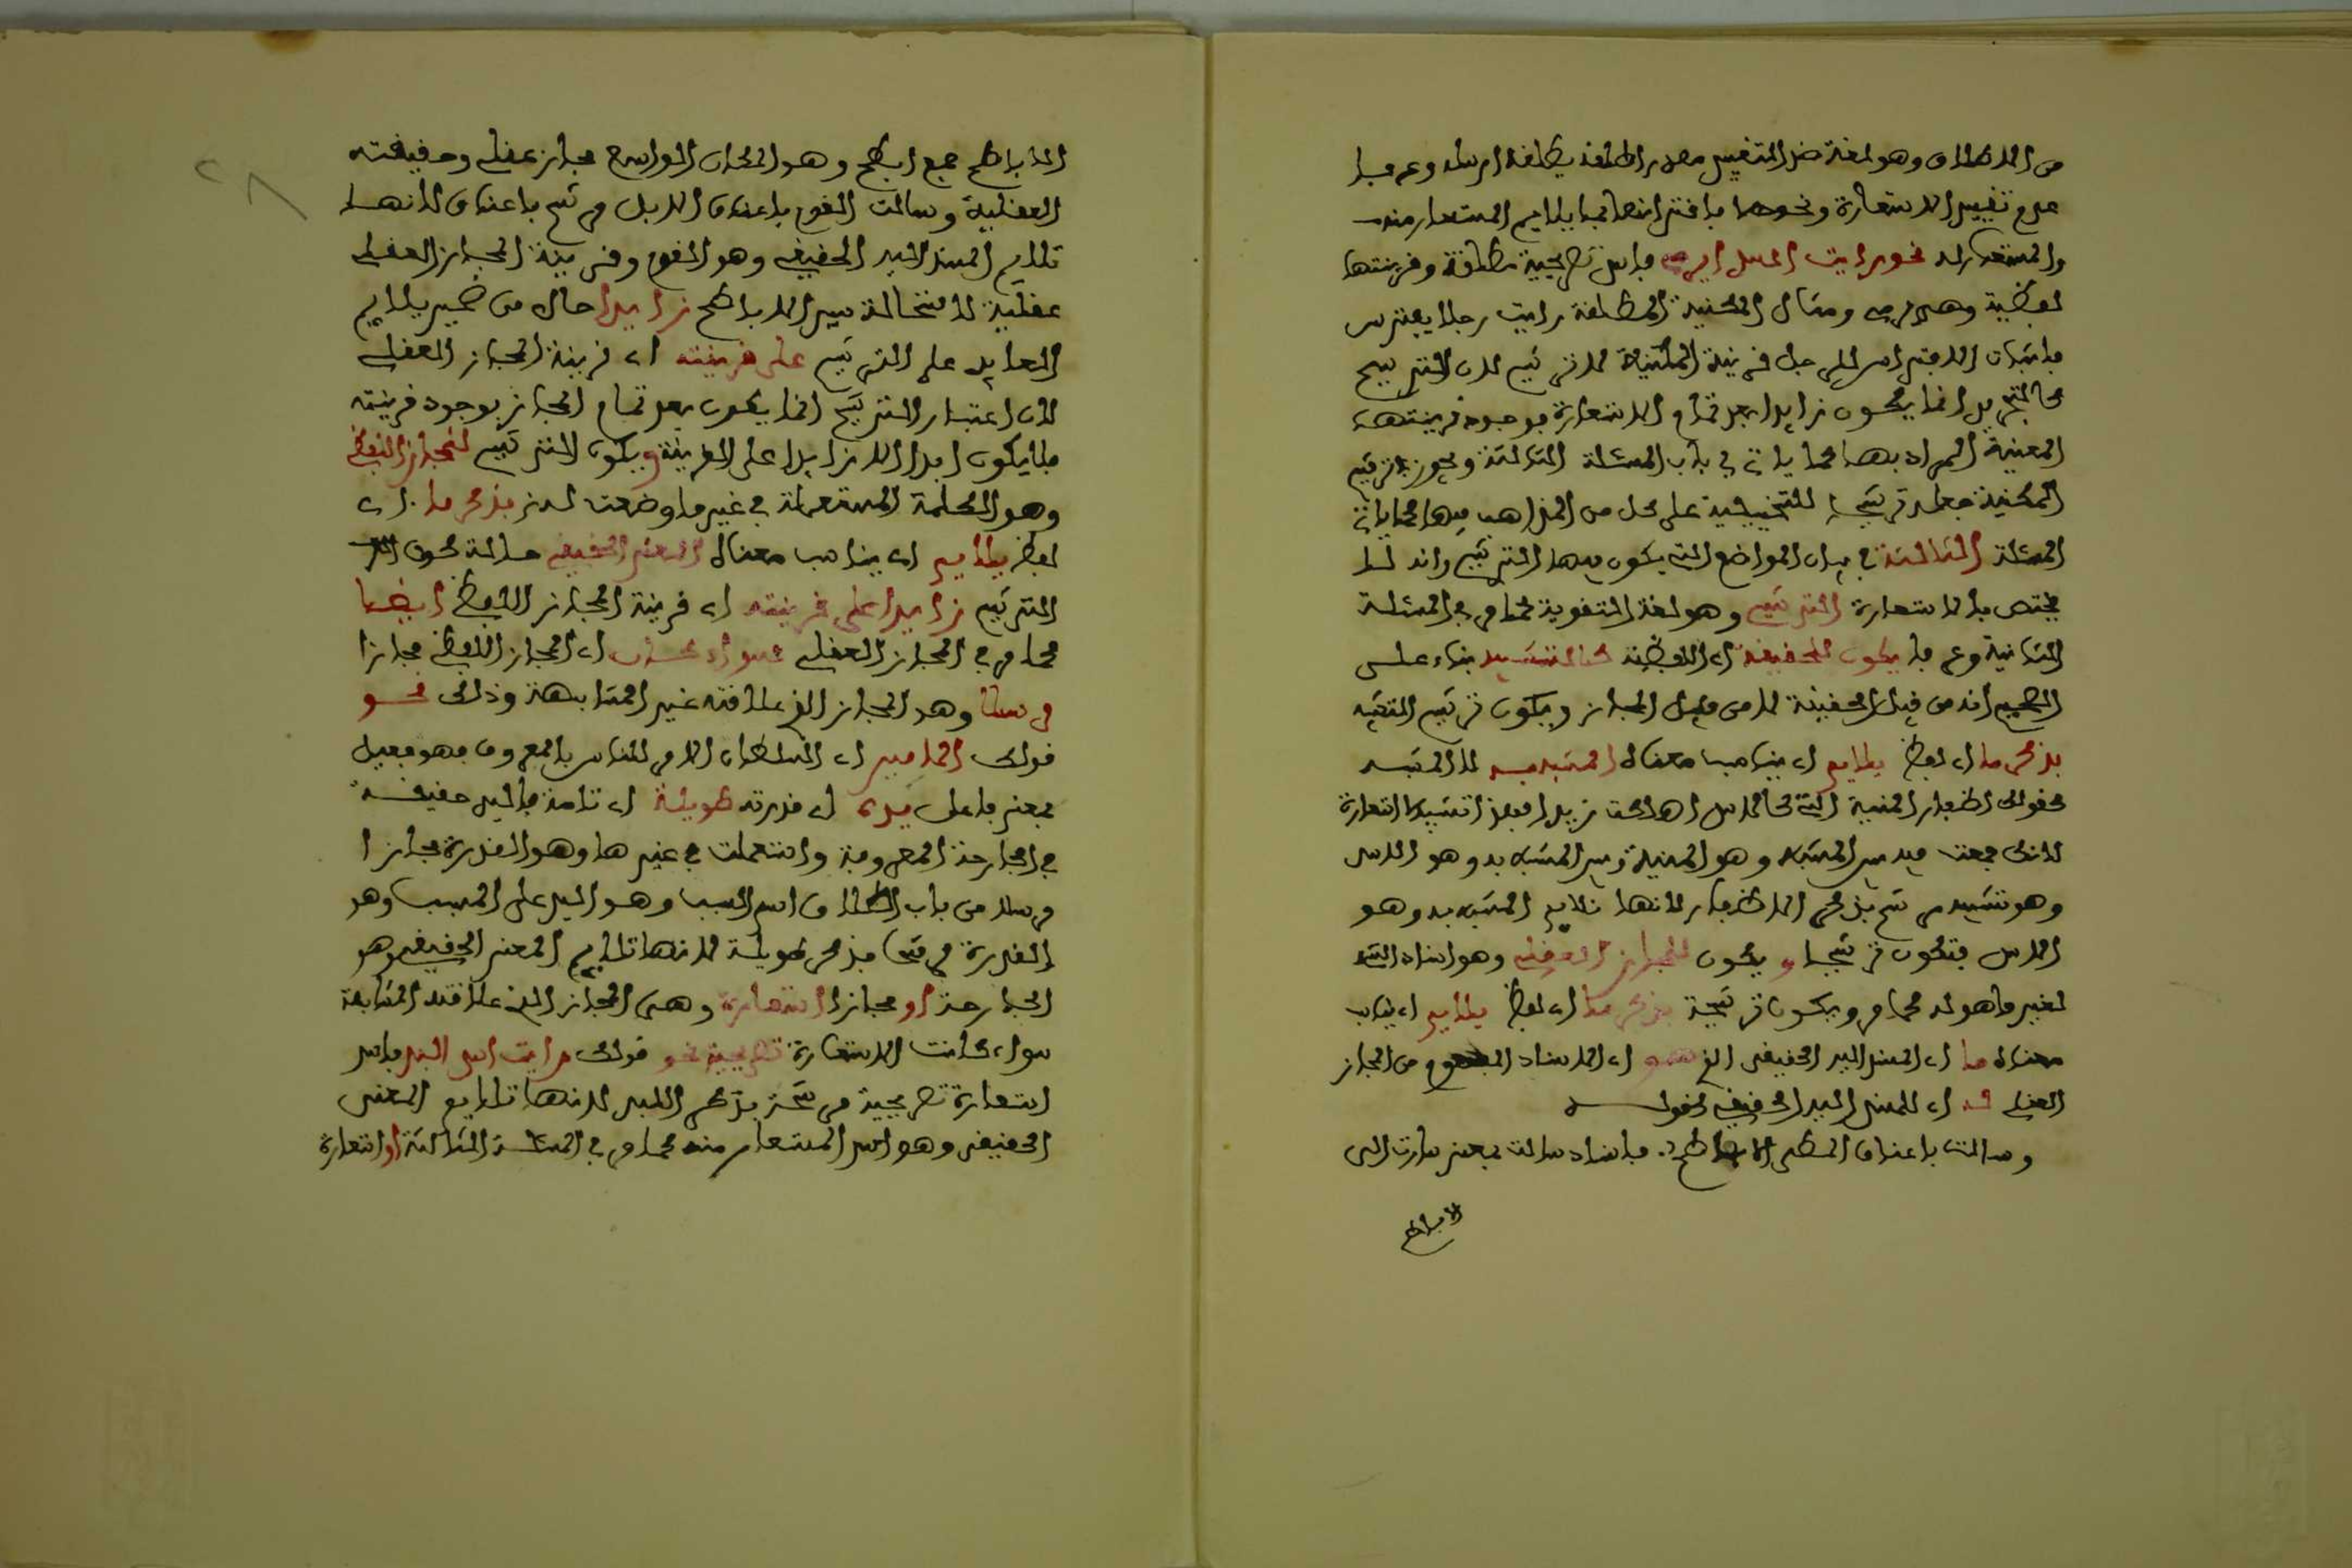 من الاطلاق وهو لغة ضد التقييد مصدر اطلقه يطلقه ارسله وعرفا
عدم تقييد الاستعارة ونحوها باقترانها بما يلايم المستعار منه
والمستعار له نحو رايت اسدا يرمي فاسد تصريحية مطلقة وقرينتها
لفظية وهي يرمي ومثال المكنية المطلقة رايت رجلا يفترس
فاثبات الافتراس للرجل قرينة المكنية لا ترشيح لان الترشيح
كالتجريد انما يكون زايدا بعد تمام الاستعارة بوجود قرينتها
المعينة المراد بها كما ياتي في باب المسئلة الثالثة ويجوز ترشيح
المكنية جعله ترشيحا للتخييلية على كل من المذاهب فيها كما ياتي
المسئلة الثالثة في بيان المواضع التي يكون فيها الترشيح وانه لا
يختص بالاستعارة الترشيح وهو لغة التقوية كما مر في المسئلة
الثانية وعرفا يكون للحقيقة اي اللفظية كالتشبيه بناء على
الصحيح انه من قبيل الحقيقة لا من قبيل المجاز ويكون ترشيح التشبيه
بذكر ما اي لفظ يلايم اي يناسب معناه المشبه به لا المشبه
كقولك اظفار المنية التي كالاسد اهلكت زيدا فهذا تشبيه لا استعارة
لانك جمعت فيه بين المشبه وهو المنية وبين المشبه به وهو الاسد
وهو تشبيه مرشح بذكر الاظفار لانها تلايم المشبه به وهو
الاسد فتكون ترشيحا ويكون للمجاز العقلي وهو اسناد الشيء
لغير ما هو له كما مر ويكون ترشيحه بذكر ما اي لفظ يلايم اي يناسب
معناه ما اي المسند اليه الحقيقي الذي هو اي الاسناد المفهوم من المجاز
العقلي له اي للمسند اليه الحقيقي كقوله
وسالت باعناق المطي الاباطح. فاسناد سالت بمعنى سارت الى
الاباطح
الاباطح جمع ابطح وهو المكان الواسع مجاز عقلي وحقيقته
العقلية وسالت القوم باعناق الابل مرشح باعناق لانها
تلايم المسند اليه الحقيقي وهو القوم وقرينة المجاز العقلي
عقلية لاستحالة سير الاباطح زايدا حال من ضمير يلايم
العايد على الترشيح على قرينته اي قرينة المجاز العقلي
لان اعتبار الترشيح انما يكون بعد تمام المجاز بوجود قرينته
فلا يكون ابدا الا زايدا على القرينة ويكون الترشيح للمجاز اللفظي
وهو الكلمة المستعملة في غير ما وضعت له بذكر ما اي
لفظ يلايم اي يناسب معناه المعنى الحقيقي حالة كون
الترشيح زايدا على قرينته اي قرينة المجاز اللفظي ايضا
كما مر في المجاز العقلي سواء كان اي المجاز اللفظي مجازا
مرسلا وهو المجاز الذي علاقته غير المشابهة وذلك نحو
قولك للامير اي السلطان الامر للناس بالمعروف فهو فعيل
بمعنى فاعل يده اي قدرته طويلة اي تامة فاليد حقيقة
في الجارحة المعروفة واستعملت في غيرها وهو القدرة مجازا
مرسلا من باب اطلاق اسم السبب وهو اليد على المسبب وهو
القدرة مرشحا بذكر طويلة لانها تلايم المعنى الحقيقي وهو
الجارحة او مجازا استعارة وهي المجاز الذي علاقته المشابهة
سواء كانت الاستعارة تصريحية نحو قولك رايت اسدا له لبد فاسد
استعارة تصريحية مرشحة بذكر اللبد لانها تلايم المعنى
الحقيقي وهو الاسد المستعار منه كما مر في المسئلة الثالثة او استعارة